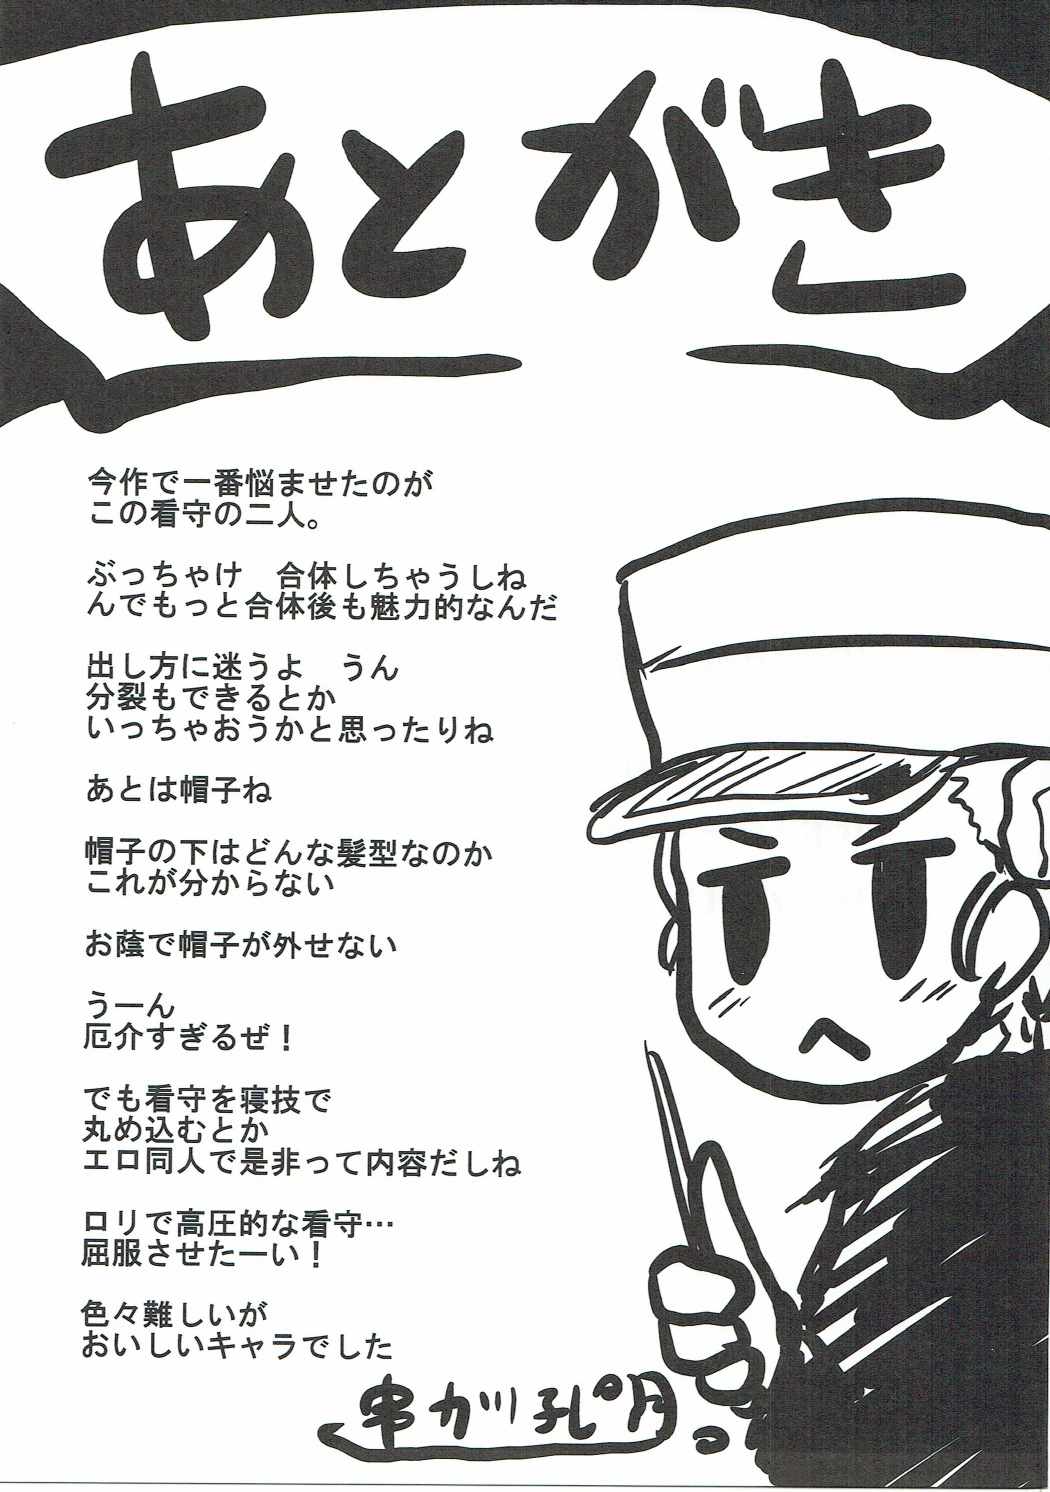 あとがき
今作で一番悩ませたのが
この看守の二人。
ぶっちゃけ　合体しちゃうしね
んでもっと合体後も魅力的なんだ
出し方に迷うよ　うん
分裂もできるとか
いっちゃおうかと思ったりね
あとは帽子ね
帽子の下はどんな髪型なのか
これが分からない
お蔭で帽子が外せない
うーん
厄介すぎるぜ！
でも看守を寝技で
丸め込むとか
エロ同人で是非って内容だしね
ロリで高圧的な看守…
屈服させたーい！
色々難しいが
おいしいキャラでした
串カツ孔明